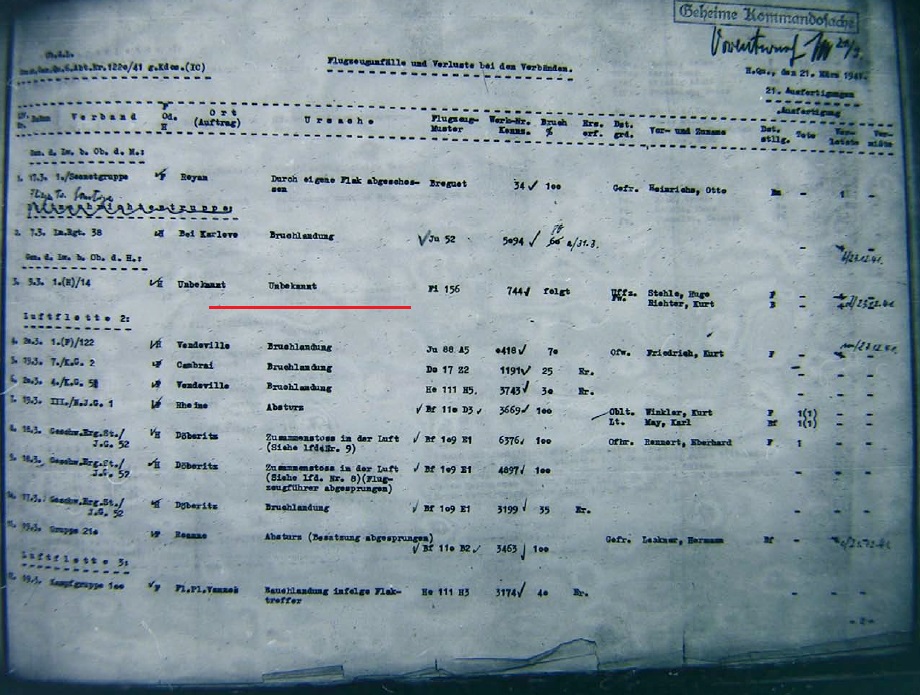 Geheime Kommandosache
Vorentwurf
Flugzeugunfälle und Verluste bei den Verbänden.
H.Qu., den 21. März 1941.
21. Ausfertigungen
.Ausfertigung
Verband Od. H Ort (Auftrag) Ursache Flugzeug-Muster Werk-Nr. Kennz. Bruch % Ers. erf. Dst. grd. Vor- und Zuname Dst. stllg. Tote Ver-letzte Ver-mißte
Gen. d. Lw. b. Ob. d. M.:
1. 17.3. 1./Seenotgruppe F Royan Durch eigene Flak abgeschos-sen Breguet 34 100 Gefr. Heinrichs, Otto - 1 -
2. 7.3. Ln.Rgt. 38 H Bei Karlove Bruchlandung Ju 52 5094 - -
Gen. d. Lw. b. Ob. d. H.:
3. 5.3. 1.(H)/14 H Unbekannt Unbekannt Fi 156 744 folgt Uffz. Stehle, Hugo F - -
Fw. Richter, Kurt B - -
Luftflotte 2:
4. 20.3. 1.(F)/122 H Vendeville Bruchlandung Ju 88 A5 0418 70 Ofw. Friedrich, Kurt F - -
5. 19.3. 7./K.G. 2 Cambrai Bruchlandung Do 17 Z2 1191 25 Nr. - - -
6. 20.3. 4./K.G. 53 Vendeville Bruchlandung He 111 H5 3743 30 Nr. - - -
7. 19.3. III./N.J.G. 1 Rheine Absturz Bf 110 D3 3669 100 Oblt. Winkler, Kurt F 1(1) - -
Lt. May, Karl Bf 1(1) - -
8. 18.3. Geschw.Erg.St./ J.G. 52 H Döberitz Zusammenstoss in der Luft Bf 109 E1 6376 100 Ofhr. Rennert, Eberhard F 1 - -
(Siehe lfd. Nr. 9)
9. 18.3. Geschw.Erg.St./ J.G. 52 H Döberitz Zusammenstoss in der Luft Bf 109 E1 4897 100 - - -
(Siehe lfd. Nr. 8)(Flug-
zeugführer abgesprungen)
10. 17.3. Geschw.Erg.St./ J.G. 52 H Döberitz Bruchlandung Bf 109 E1 3199 35 Nr. - - -
11. 19.3. Gruppe 210 Absturz (Besatzung abgesprungen)
Bf 110 B2 3463 100 Gefr. Hermann Bf - -
Luftflotte 3:
19.3. Kampfgruppe 100 F Fl.Pl.Vannes Bauchlandung infolge Flak-treffer He 111 H3 3174 40 Nr. - - -
- 2 -